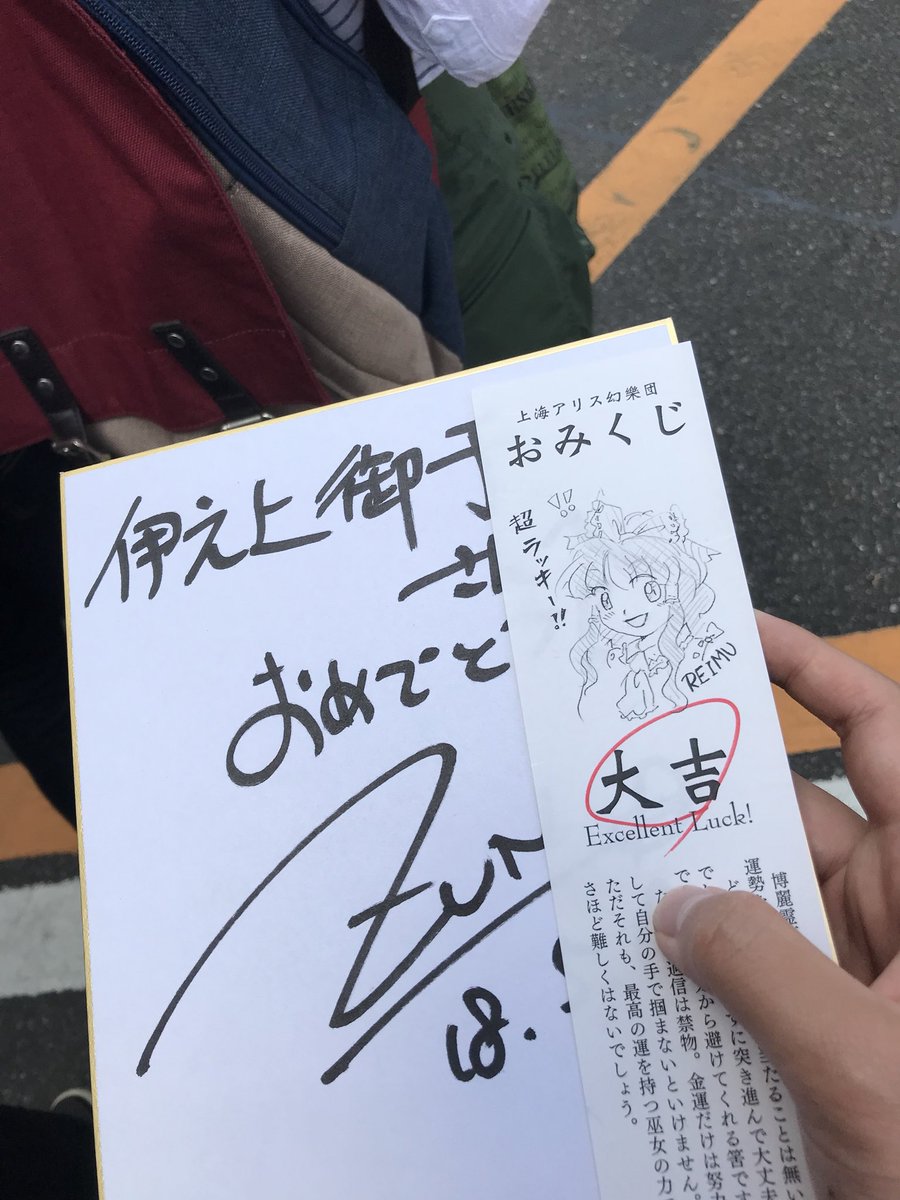 伊之上御子
さ
おめでと
ZUN
18.
上海アリス幻樂団
おみくじ
!!
超ラッキー!!
REIMU
大吉
Excellent Luck!
博麗霊
運勢
当たることは無
ずに突き進んで大丈夫
から避けてくれる筈で
過信は禁物。金運だけは努力
して自分の手で掴まないといけません。
ただそれも、最高の運を持つ巫女の力
さほど難しくはないでしょう。